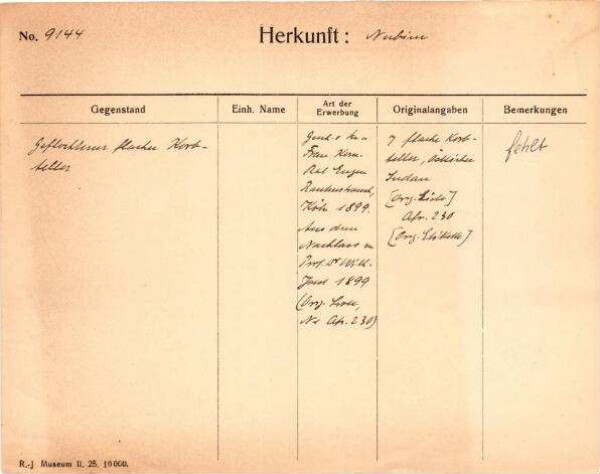 No. 9144
Herkunft: Nubien
Gegenstand
Einh. Name
Art der
Erwerbung
Originalangaben
Bemerkungen
Geflochtener flacher Korb-
teller
Gesch. v.
Frau Kom.
Rat Eugen
Rautenstrauch,
Köln 1899.
Aus dem
Nachlass v.
Prof. Dr Wilh.
Joest 1899
(Orig. Liste,
No Afr. 230)
7 flache Korb-
teller, Östlicher
Sudan
[Orig. Liste]
Afr. 230
[Orig. Etikette]
fehlt
R.-J. Museum II. 25. 10000.